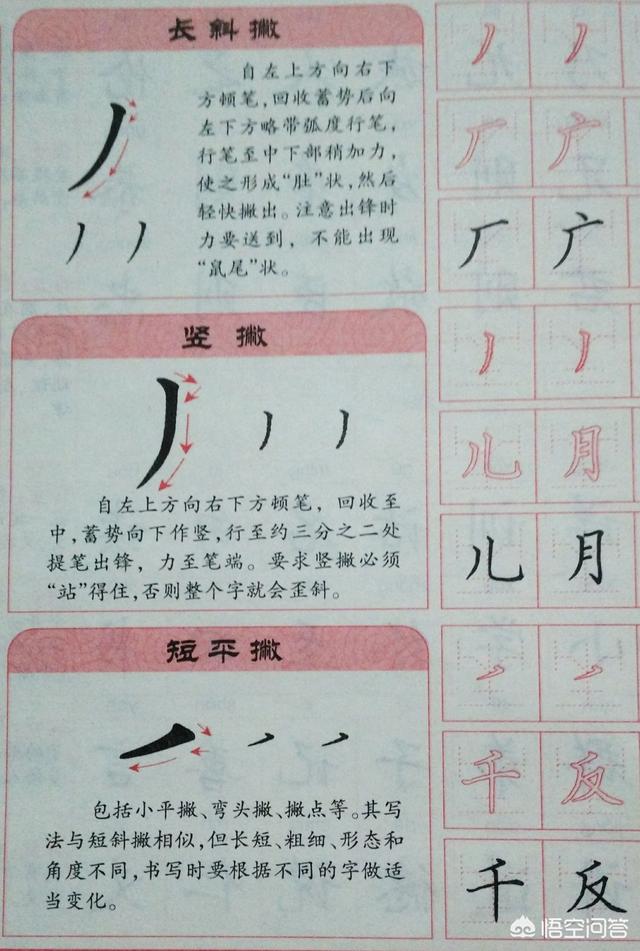 长斜撇
自左上方向右下
方顿笔，回收蓄势后向
左下方略带弧度行笔，
行笔至中下部稍加力，
使之形成“肚”状，然后
轻快撇出。注意出锋时
力要送到，不能出现
“鼠尾”状。
丿 丿
厂 广
厂 广
竖撇
自左上方向右下方顿笔，回收至
中，蓄势向下作竖，行至约三分之二处
提笔出锋，力至笔端。要求竖撇必须
“站”得住，否则整个字就会歪斜。
丿 丿
儿 月
儿 月
短平撇
包括小平撇、弯头撇、撇点等。其写
法与短斜撇相似，但长短、粗细、形态和
角度不同，书写时要根据不同的字做适
当变化。
千 反
千 反
悟空问答